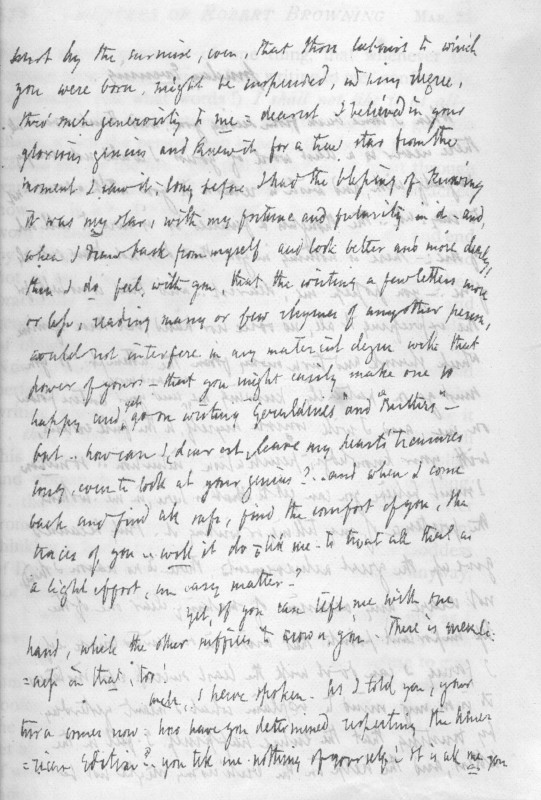 hurt by the surmise, even, that those labours to which
you were born, might be suspended, in any degree,
thro' such generosity to me = dearest, I believed in your
glorious genius and knew it for a true star from the
moment I saw it,- long before I had the blessing of knowing
it was my star, with my fortune and futurity in it - and,
when I draw back from myself and look better and more clearly,
then I do feel, with you, that the writing a few letters more
or less, reading many or few rhymes of any other person,
would not interfere in any material degree with that
power of yours - that you might easily make one so
happy and, yet go on writing "Geraldines" and "Berthas" -
but .. how can I, dearest, leave my heart's treasures
long, even to look at your genius? .. and when I come
back and find all safe, find the comfort of you, the
traces of you .. will it do - tell me - to trust all that as
a light effort, an easy matter?
Yet, if you can lift me with one
hand, while the other suffices to crown you - There is queenli-
=ness in that, too!
Well, I have spoken. As I told you, your
turn comes now = how have you determined respecting the Amer-
=ican Edition? - you tell me nothing of yourself! It is all me you